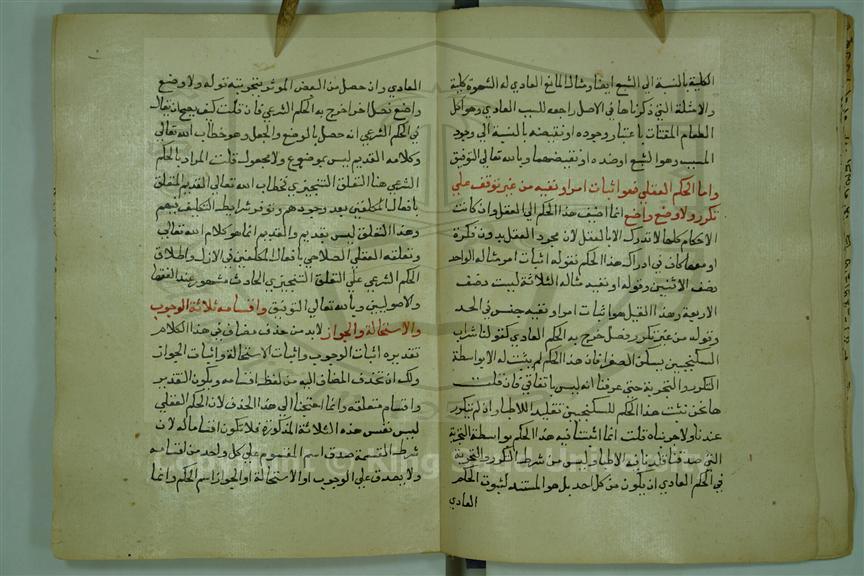 الكلية بالنسبة الي الشبع ايضا ومثال المانع العادي له الشهوة كلبة
والامثلة التي ذكرناها في الاصل راجعه للسبب العادي وهو اكل
الطعام المقتات باعتبار وجوده او نقيضه بالنسبة الي وجود
المسبب وهو الشبع او ضده او نقيضهما وبالله تعالي التوفيق
واما الحكم العقلي فهو اثبات امر او نفيه من غير توقف علي
تكرر ولا وضع واضع انما اضيف هذا الحكم الي العقل وان كانت
الاحكام كلها لا تدرك الا بالعقل لان مجرد العقل بدون فكرة
او معها كاف في ادراك هذا الحكم فقوله اثبات امر مثاله الواحد
نصف الاثنين وقوله او نفيه مثاله الثلاثة ليست نصف
الاربعة وهذا القيل هو اثبات امر او نفيه جنس في الحد
وقوله من غير تكرر فصل خرج به الحكم العادي كقولنا شراب
السكنجبين يسكن الصفرا فان هذا الحكم لم يثبت له الا بواسطة
التكرر والتجربة حتي عرفنا انه ليس باتفاقي فان قلت
ها نحن نثبت هذا الحكم للسكنجبين تقليدا للاطبا وان لم يتكرر
عندنا ولا جربناه قلت انما اثبتنا فيه هذا الحكم بواسطة التجربة
التي صدقنا فيها الاطبا وليس من شرط التكرر والتجربة
في الحكم العادي ان يكون من كل احد بل هو المستند لثبوت الحكم
العادي
العادي وان حصل من البعض الموثر بتجربته قوله ولا وضع
واضع فصل اخر خرج به الحكم الشرعي فان قلت كيف يصح ان يقال
في الحكم الشرعي انه حصل بالوضع والجعل وهو خطاب الله تعالي
وكلامه القديم ليس بموضوع ولا مجعول قلت المراد بالحكم
الشرعي هنا التعلق التنجيزي لخطاب الله تعالي القديم المتعلق
بافعال المكلفين بعد وجودهم وتوفر شرايط التكليف فيهم
وهذا التعلق ليس بقديم والقديم انما هو كلام الله تعالي
وتعلقه العقلي الصلاحي بافعال المكلفين في الازل واطلاق
الحكم الشرعي علي التعلق التنجيزي الحادث مشهور عند الفقها
والاصوليين وبالله تعالي التوفيق واقسامه ثلاثة الوجوب
والاستحالة والجواز لا بد من حذف مضاف في هذا الكلام
تقديره اثبات الوجوب واثبات الاستحالة واثبات الجواز
ولك ان تحذف المضاف اليه من لفظ اقسامه ويكون التقدير
واقسام متعلقه وانما احتجنا الي هذا الحذف لان الحكم العقلي
ليس نفس هذه الثلاثة المذكورة فلا تكون اقساما له لان
شرط القسمة صدق اسم المقسوم علي كل واحد من اقسامه
ولا يصدق علي الوجوب او الاستحالة او الجواز اسم الحكم وانما